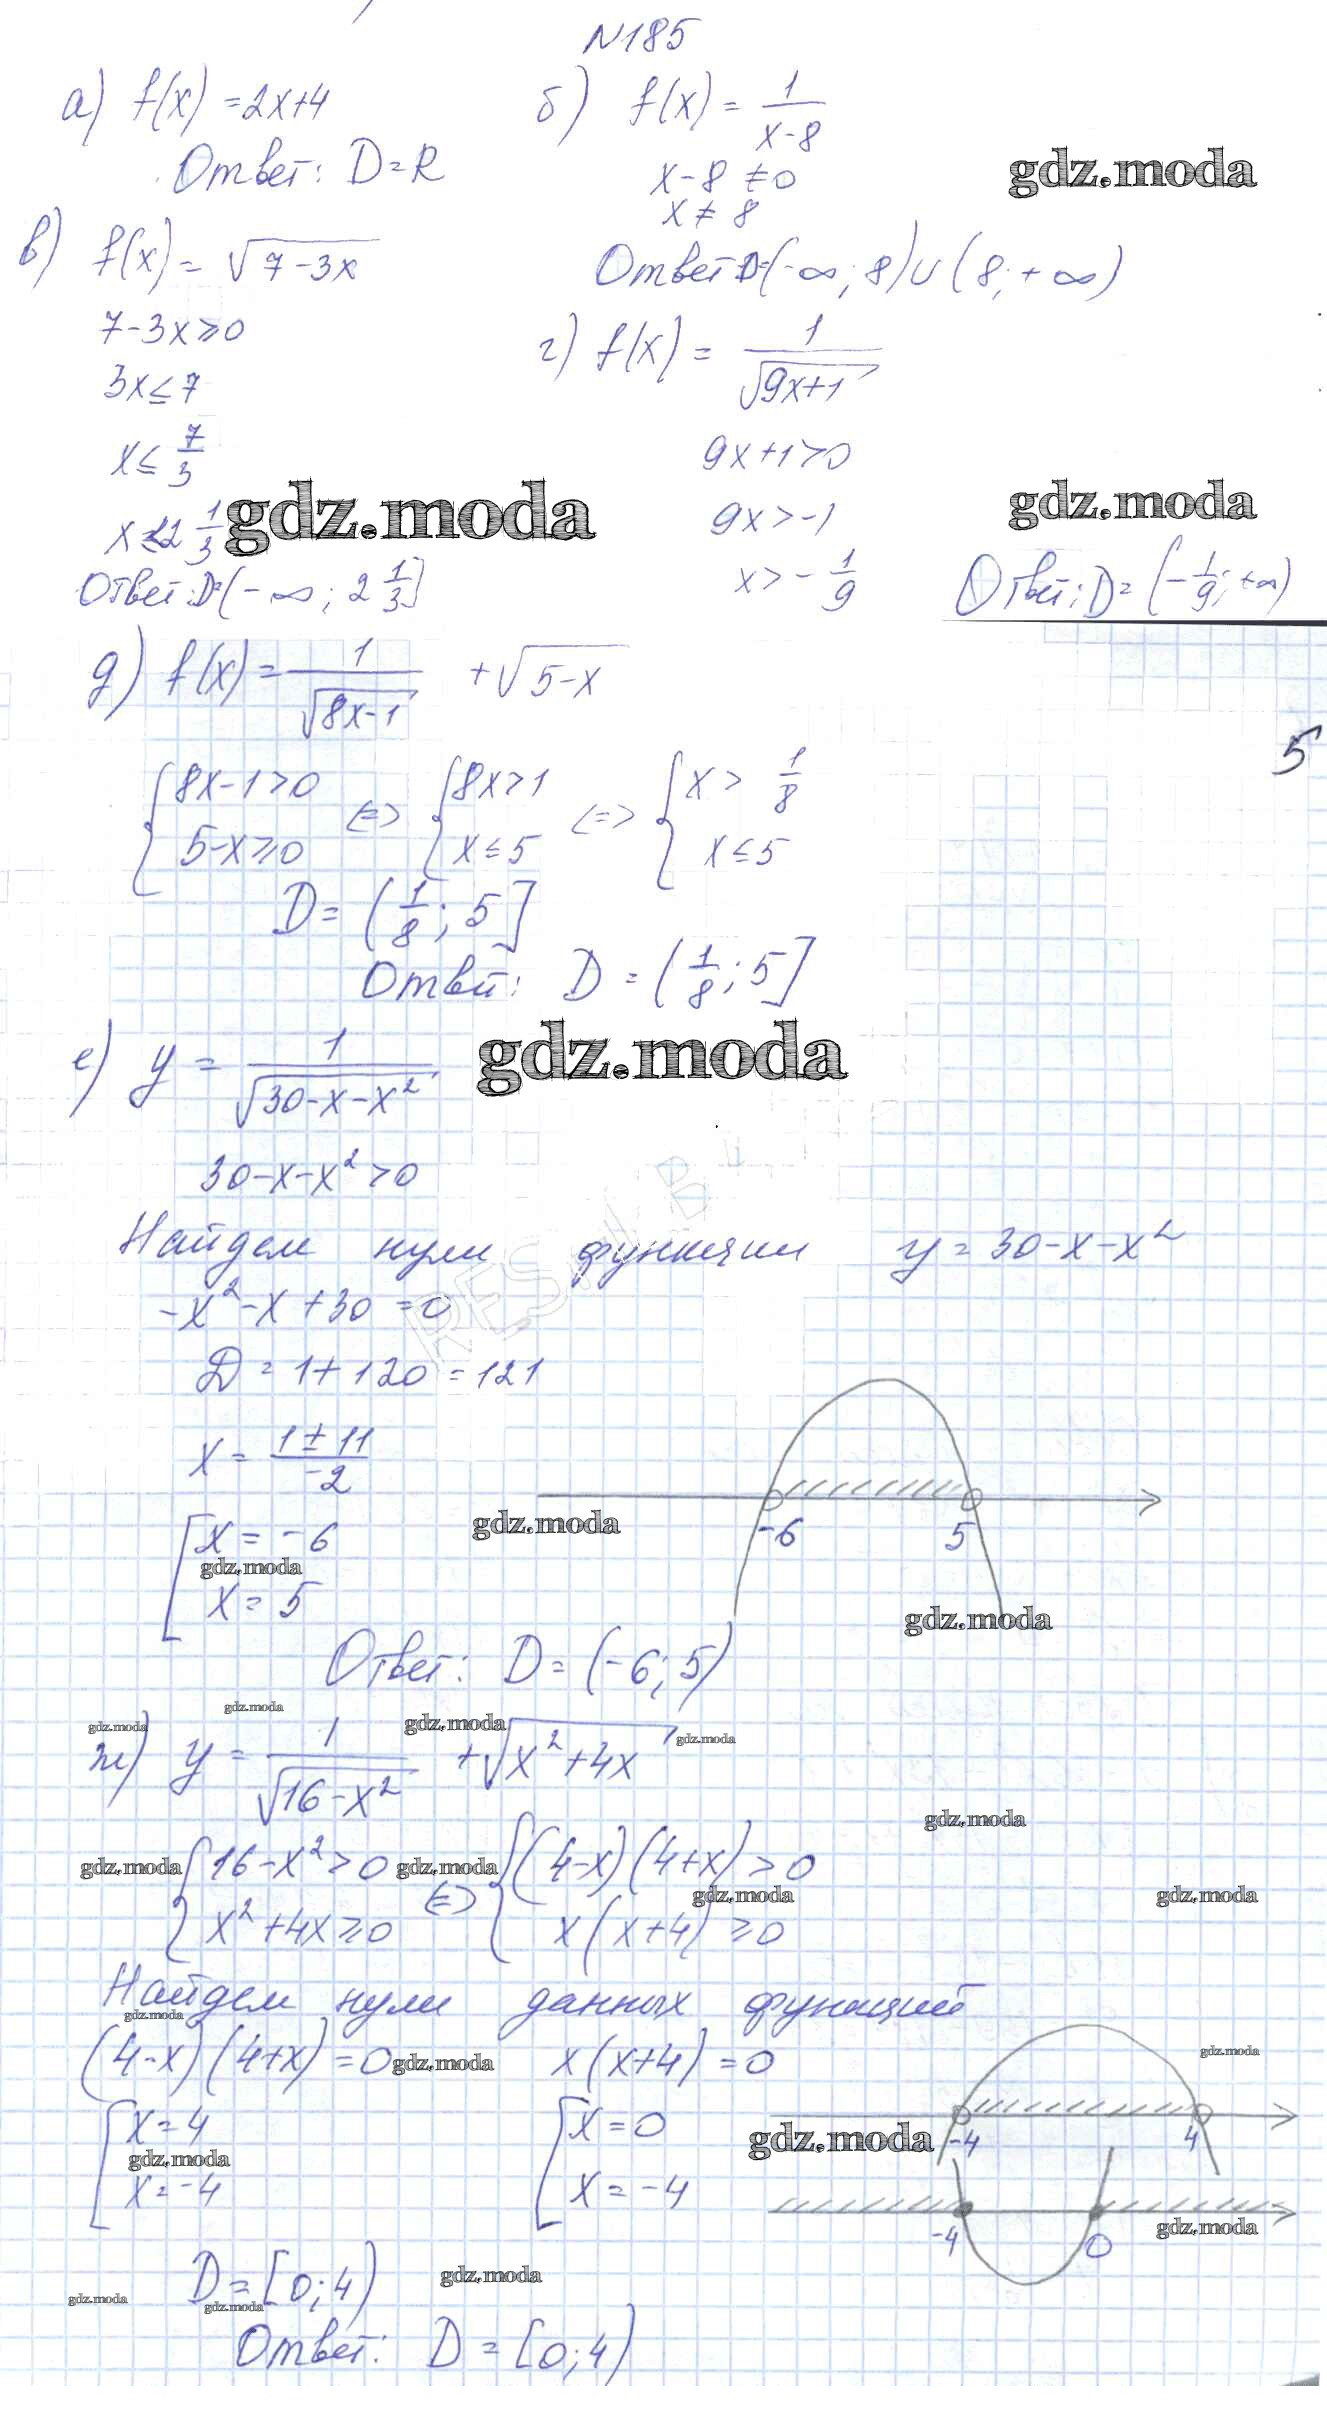 N185
а) f(x) = 2x+4
Ответ: D = R
б) f(x) = 1/(x-8)
x-8 ≠ 0
x ≠ 8
Ответ D=(-∞; 8)∪(8; +∞)
gdz.moda
в) f(x) = √(7-3x)
7-3x ≥ 0
3x ≤ 7
x ≤ 7/3
x ≤ 2 1/3
Ответ: D=(-∞; 2 1/3]
gdz.moda
г) f(x) = 1/√(9x+1)
9x+1 > 0
9x > -1
x > -1/9
gdz.moda
Ответ: D = (-1/9; +∞)
д) f(x) = 1/√(8x-1) + √(5-x)
5
{8x-1>0 <=> {8x>1 <=> {x > 1/8
5-x ≥ 0 x ≤ 5 x ≤ 5
D = (1/8; 5]
Ответ: D = (1/8; 5]
е) y = 1/√(30-x-x²)
gdz.moda
30-x-x² > 0
Найдем нули функции y = 30-x-x²
-x²-x+30 = 0
D = 1+120 = 121
x = (1±11)/-2
[x = -6
gdz.moda
x = 5
gdz.moda
-6 5
gdz.moda
Ответ: D = (-6; 5)
gdz.moda
gdz.moda
gdz.moda
gdz.moda
ж) y = 1/√(16-x²) + √(x²+4x)
gdz.moda
gdz.moda {16-x²>0 gdz.moda <=> {(4-x)(4+x) > 0
gdz.moda gdz.moda
x²+4x ≥ 0 x(x+4) ≥ 0
Найдем нули данных функций
gdz.moda
(4-x)(4+x) = 0 gdz.moda x(x+4) = 0
gdz.moda
[x = 4 [x = 0
gdz.moda
x = -4 x = -4
gdz.moda
-4 4
-4 0
gdz.moda
D = [0; 4)
gdz.moda
gdz.moda
gdz.moda
Ответ: D = [0; 4)